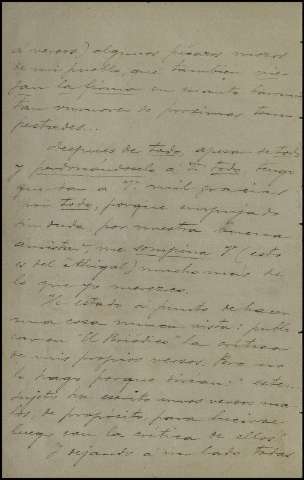 á veces) algunos pícaros mozos
de mi pueblo, que también via-
jan la firma en cuanto barrun-
tan rumores de próximas tem-
pestades...
Después de todo, apesar de todo
y perdonándoselo á V. todo tengo
que dar á V. mil gracias
por todo, porque empujado
sin duda por nuestra buena
amistad me 
es del
lo que yo merezco.
He estado a punto de hacer
una cosa nunca vista: publi-
car en "El
de mis propios versos. Pero no
lo hago porque dirían: "este
sujeto ha escrito unos versos ma-
los, de propósito, para lucirse
luego con la crítica de ellos".
Y dejando á un lado todas